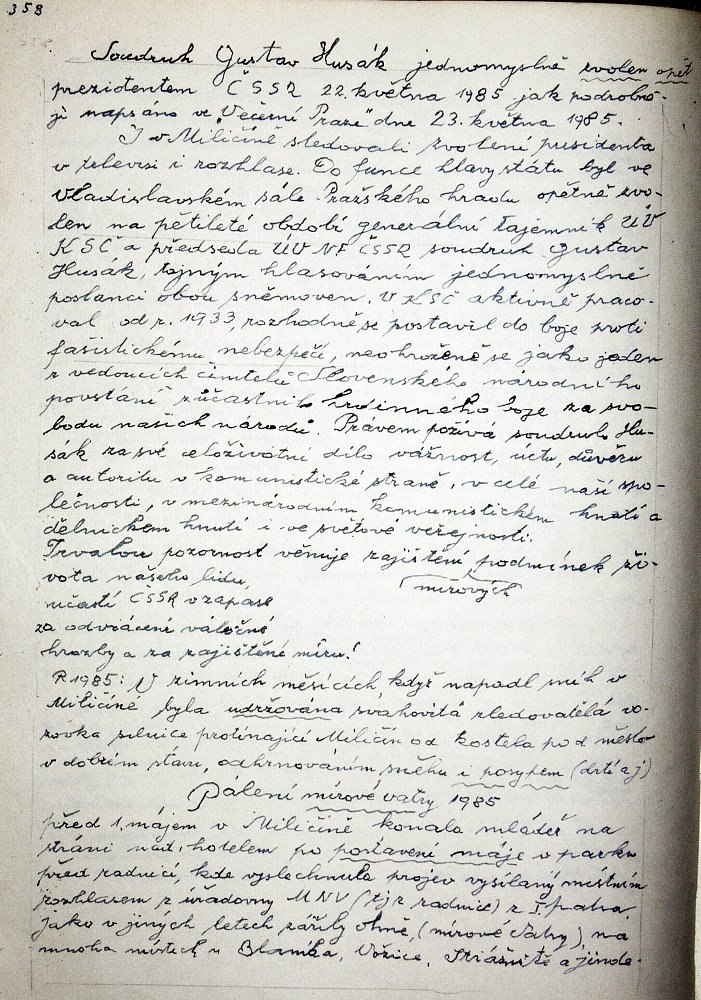 358
Soudruh Gustav Husák jednomyslně zvolen opět
prezidentem ČSSR 22. května 1985 jak podrobně-
ji napsáno ve „Večerní Praze“ dne 23. května 1985.
I v Miličíně sledovali zvolení presidenta
v televisi i rozhlase. Do funce hlavy státu byl ve
Vladislavském sále Pražského hradu opětně zvo-
len na pětileté období generální tajemník ÚV
KSČ a předseda ÚV NF ČSSR soudruh Gustav
Husák, tajným hlasováním jednomyslně
poslanci obou sněmoven. V KSČ aktivně praco-
val od r. 1933, rozhodně se postavil do boje proti
fašistickému nebezpečí, neohroženě se jako jeden
z vedoucích činitelů Slovenského národního
povstání zúčastnil hrdinného boje za svo-
bodu našich národů. Právem požívá soudruh Hu-
sák za své celoživotní dílo vážnost, úctu, důvěru
a autoritu v komunistické straně, v celé naší spo-
lečnosti, v mezinárodním komunistickém hnutí a
dělnickém hnutí i ve světové veřejnosti.
Trvalou pozornost věnuje zajištění podmínek ži-
mírových
vota našeho lidu,
účastí ČSSR v zápase
za odvrácení válečné
hrozby a za zajištění míru!
R 1985: V zimních měsících, když napadl sníh v
Miličíně byla udržována svahovitá zledovatělá vo-
zovka silnice protínající Miličín od kostela pod město
v dobrém stavu, odhrnováním sněhu i posypem (drtí aj)
Pálení mírové vatry 1985
před 1. májem v Miličíně konala mládež na
stráni nad hotelem po postavení máje v parku
před radnicí, kde vyslechnula projev vysílaný místním
rozhlasem z úřadovny MNV (tj z radnice) z I. patra,
jako v jiných letech zářily ohně, (mírové vatry), na
mnoha místech u Blaníka, Vožice, Střážiště a jinde.